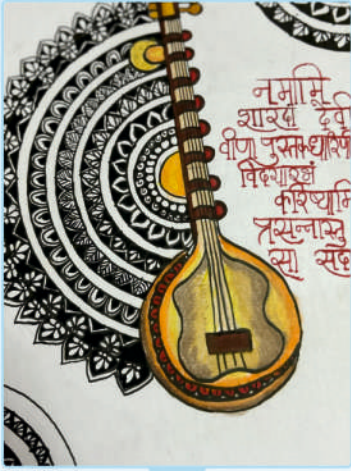 नमामि
शारदा देवी
वीणा पुस्तकधारिणी
विद्यारंभं
करिष्यामि
प्रसन्नास्तु
सा सदा